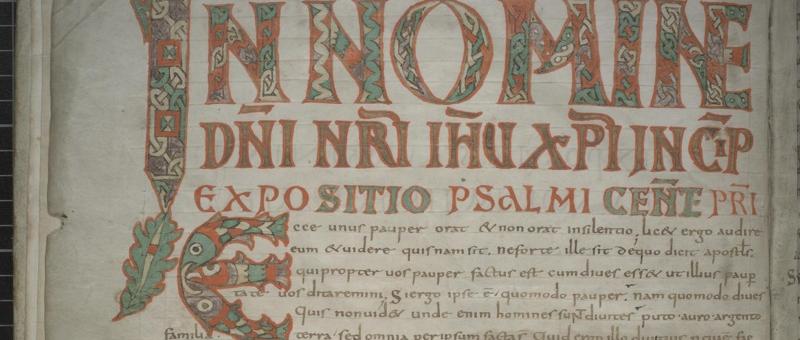 IN NOMINE
DN̄I NR̄I IH̄U XP̄I INCIP̄
EXPOSITIO PSALMI CEN̄TE PR̄I
Ecce unus pauper orat & non orat insilentio, lic& ergo audire
eum &uidere quisnam sit. neforte ille sit dequo dicit apostl̄s.
qui propter uos pauper factus est cum diues ess& ut illius paup
tate uos ditaremini. Si ergo ipse ē quomodo pauper. nam quomodo diues
quis nonuid& unde enim homines sun̄t diuites puto auro argento
familia. terra sed omnia per ipsum facta